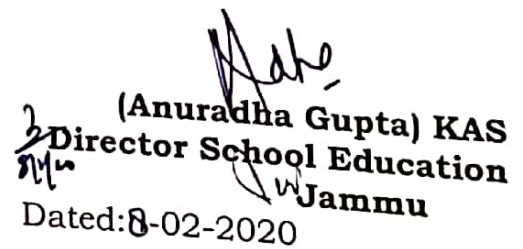 (Anuradha Gupta) KAS
Director School Education
Jammu
Dated:8-02-2020